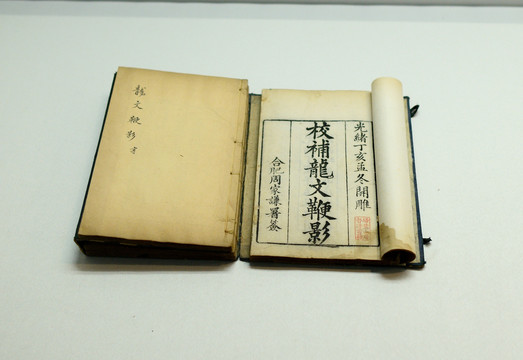 光緒丁亥孟冬開雕
校補龍文鞭影
合肥周家謙署簽
龍文鞭影